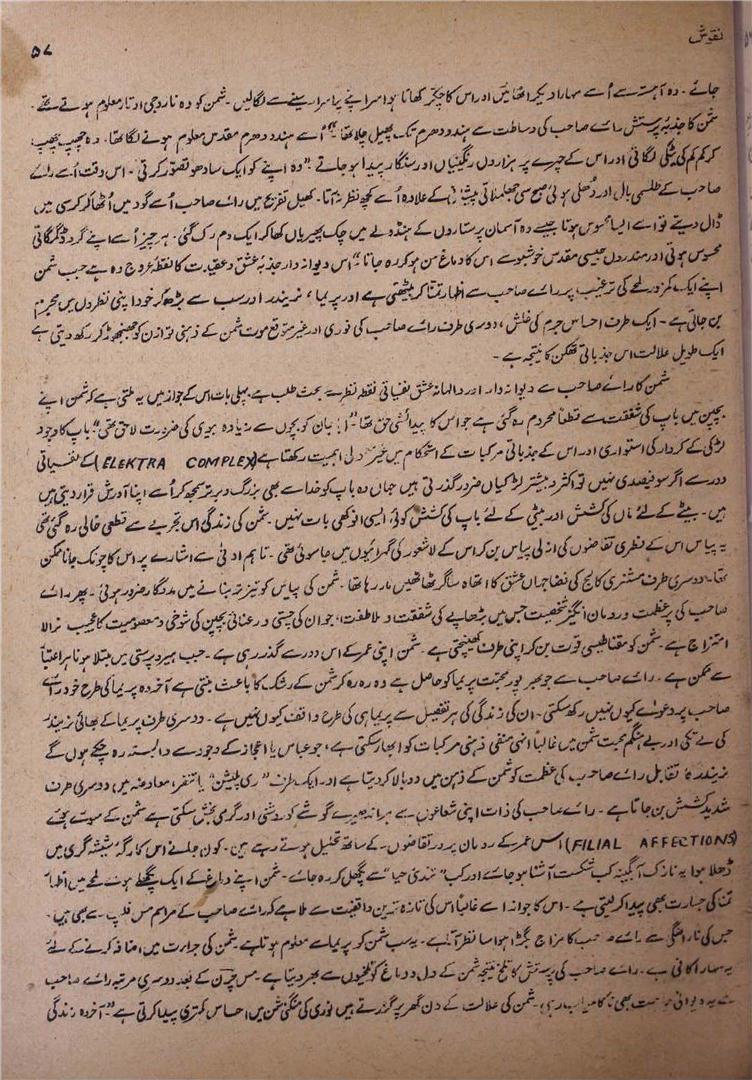 نقوش
۵۷
جائے۔ وہ آہستہ سے اُسے سہارا دیکر اٹھائیں اور اس کا چکر کھاتا ہوا سر اپنے پر اسرار سینے سے لگالیں۔ شمن کو وہ نارد جی اوتار معلوم ہوتے تھے۔
شمن کا جذبۂ پرستش رائے صاحب کی وساطت سے ہندو دھرم تک پھیل چلا تھا۔ "اُسے ہندو دھرم مقدس معلوم ہونے لگا تھا۔ وہ چھپ چھپ
کر کم کم کی ٹکی لگاتی اور اس کے چہرے پر ہزاروں رنگینیاں اور سنگار پیدا ہو جاتے۔" وہ اپنے کو ایک سادھو تصور کرتی۔ اس وقت اُسے رائے
صاحب کے طلسمی بال اور دُھلی ہوئی صبح سی جھلملاتی پیشانی کے علاوہ اُسے کچھ نظر نہ آتا۔ کھیل تفریح میں رائے صاحب اُسے گود میں اُٹھا کر کرسی میں
ڈال دیتے تو اسے ایسا محسوس ہوتا جیسے وہ آسمان پر ستاروں کے ہنڈولے میں چک پھیریاں کھا کر ایک دم رک گئی۔ ہر چیز اُسے اپنے گرد ڈگمگاتی
محسوس ہوتی اور مندروں جیسی مقدس خوشبو سے اس کا دماغ سن ہو کر رہ جاتا۔" اس دیوانہ وار جذبہ عشق و عقیدت کا نقطہ عروج وہ ہے جب شمن
اپنے ایک کمزور لمحے کی ترغیب پر رائے صاحب سے اظہار تمنا کر بیٹھتی ہے اور پریما، نریندر اور سب سے بڑھ کر خود اپنی نظروں میں مجرم
بن جاتی ہے۔ ایک طرف احساس جرم کی خلش، دوسری طرف رائے صاحب کی فوری اور غیر متوقع موت شمن کے ذہنی توازن کو جھنجھوڑ کر رکھ دیتی ہے
ایک طویل علالت اس جذباتی تھکن کا نتیجہ ہے۔
شمن کا رائے صاحب سے دیوانہ وار اور والہانہ عشق نفسیاتی نقطہ نظر سے بحث طلب ہے پہلی بات اس کے جواز میں یہ ملتی ہے کہ شمن اپنے
بچپن میں باپ کی شفقت سے قطعاً محروم رہ گئی ہے جو اس کا پیدائشی حق تھا۔ "ابا میاں کو بچوں سے زیادہ بیوی کی ضرورت لاحق تھی"۔ باپ کا وجود
لڑکی کے کردار کی استواری اور اس کے جذباتی مرکبات کے استحکام میں غیر معمولی اہمیت رکھتا ہے (ELEKTRA COMPLEX) کے نفسیاتی
دور سے اگر سو فیصدی نہیں تو اکثر و بیشتر لڑکیاں ضرور گذرتی ہیں جہاں وہ باپ کو خدا سے بھی بزرگ و برتر سمجھ کر اُسے اپنا آورش قرار دیتی ہیں
ہیں۔ بیٹے کے لئے ماں کی کشش اور بیٹی کے لئے باپ کی کشش کوئی ایسی انوکھی بات نہیں۔ شمن کی زندگی اس تجربے سے قطعی خالی رہ گئی تھی
یہ پیاس اس کے فطری تقاضوں کی ازلی پیاس بن کر اس کے لاشعور کی گہرائیوں میں جا سوئی تھی۔ تاہم ادنیٰ سے اشارے پر اس کا چونک جانا ممکن
تھا۔ دوسری طرف مشنری کالج کی فضا جہاں عشق کا اتھاہ ساگر ٹھاٹھیں مار رہا تھا۔ شمن کی پیاس کو تیز تر بنانے میں مددگار ضرور ہوئی۔ پھر رائے
صاحب کی پر عظمت و رومان انگیز شخصیت جس میں بڑھاپے کی شفقت و ملاطفت، جوانی کی چستی و رعنائی بچپن کی شوخی و معصومیت کا عجیب نرالا
امتزاج ہے۔ شمن کو مقناطیسی قوت بن کر اپنی طرف کھینچتی ہے۔ شمن اپنی عمر کے اس دور سے گذر رہی ہے۔ جب ہیرو پرستی میں مبتلا ہونا ہر اعتبار
سے ممکن ہے۔ رائے صاحب سے جو بھر پور محبت پریما کو حاصل ہے وہ رہ رہ کر شمن کے رشک کا باعث بنتی ہے آخر وہ پریما کی طرح خود رائے
صاحب پر دعوے کیوں نہیں رکھ سکتی۔ ان کی زندگی کی ہر تفصیل سے پریما ہی کی طرح واقف کیوں نہیں ہے۔ دوسری طرف پریما کے بھائی نریندر
کی بے تکی اور بے ہنگم محبت شمن میں غالباً انہی منفی ذہنی مرکبات کو ابھار سکتی ہے، جو عباس یا اعجاز کے وجود سے وابستہ رہ چکے ہوں گے
نریندر کا تقابل رائے صاحب کی عظمت کو شمن کے ذہن میں دوبالا کر دیتا ہے اور ایک طرف "ری پلیشن" یا تنفر، معاوضہ میں دوسری طرف
شدید کشش بن جاتا ہے۔ رائے صاحب کی ذات اپنی شعاعوں سے ہر اندھیرے گوشے کو روشنی اور گرمی بخش سکتی ہے شمن کے سوتے ہوئے
(FILIAL AFFECTIONS) اس عمر کے رومان پرور تقاضوں کے ساتھ تحلیل ہوتے رہے ہیں۔ کون جانے اس کارگہ شیشہ گری میں
ڈھلا ہوا یہ نازک آبگینہ کب شکست آشنا ہو جائے اور کب "تندئ صہبا" سے پگھل کر رہ جائے۔ شمن اپنے دماغ کے ایک پگھلے ہوئے لمحے میں اظہار
تمنا کی جسارت بھی پیدا کر لیتی ہے۔ اس کا جواز اسے غالباً اس کی تازہ ترین واقفیت سے ملا ہے کہ رائے صاحب کے مراسم مس فلپ سے بھی ہیں۔
جس کی ناراضگی سے رائے صاحب کا مزاج بگڑا ہوا سا نظر آتا ہے۔ یہ سب شمن کو پریما سے معلوم ہوتا ہے۔ شمن کی جرأت میں اضافہ کرنے کے لئے
یہ سہارا کافی ہے۔ رائے صاحب کی پرستش کا تلخ نتیجہ شمن کے دل و دماغ کو تلخیوں سے بھر دیتا ہے۔ مس چرن کے بعد دوسری مرتبہ رائے صاحب
سے یہ دیوانی محبت بھی ناکامیاب رہی۔ شمن کی علالت کے دن گھر پر گزرتے ہیں نوری کی منگنی شمن میں احساس کمتری پیدا کرتی ہے۔" آخر وہ زندگی